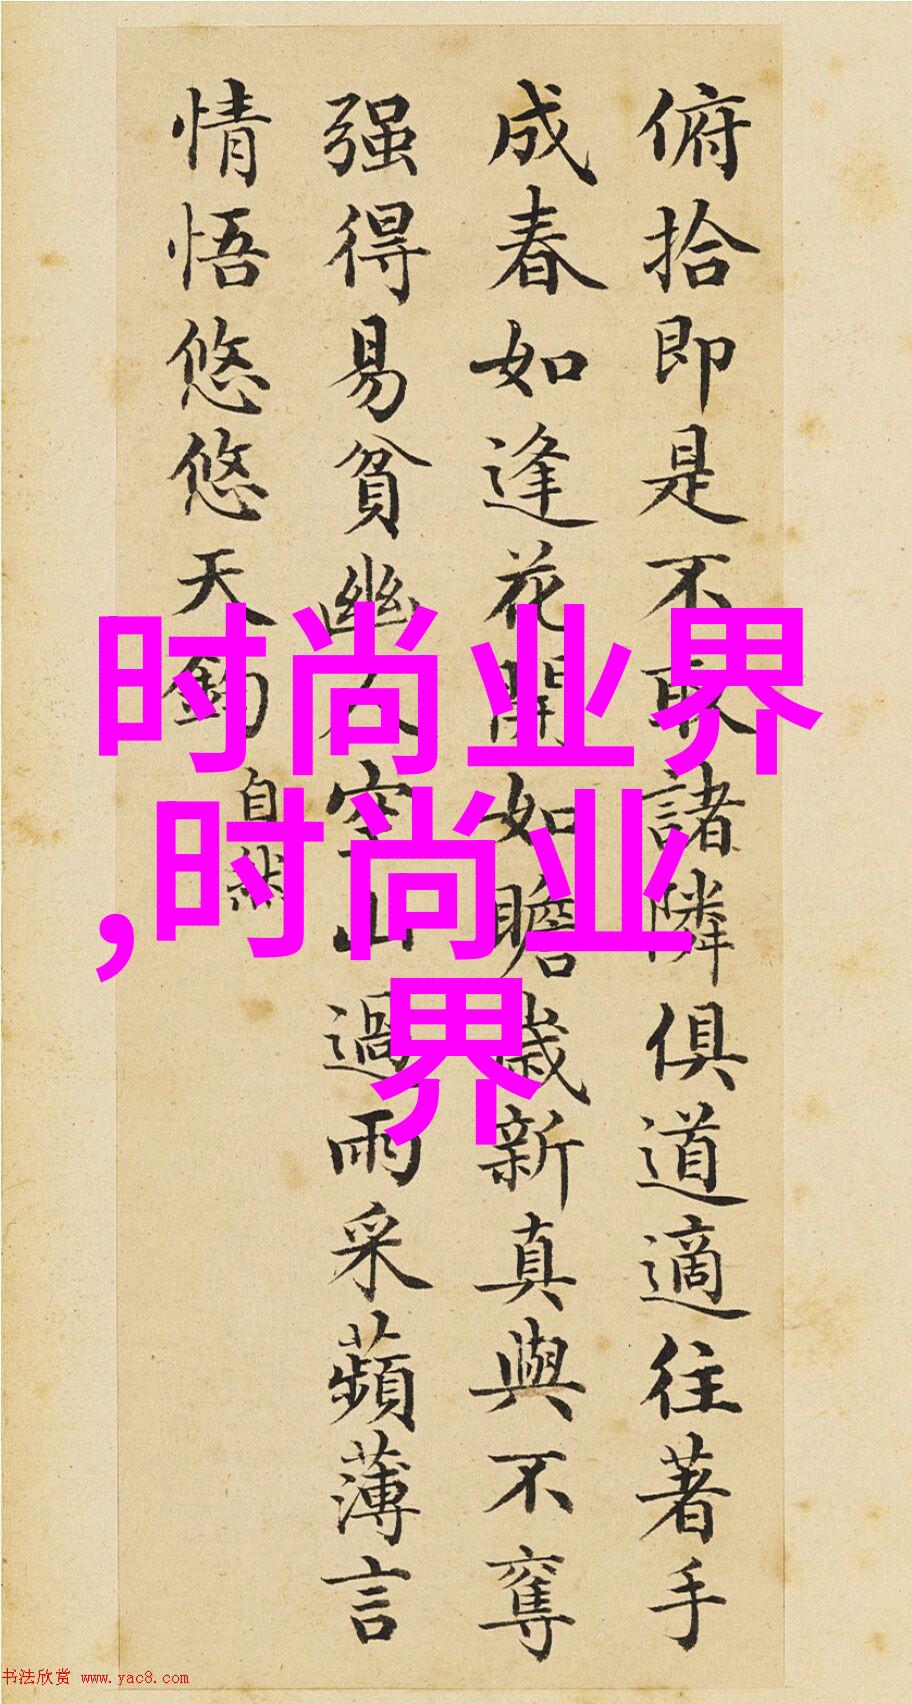 俯拾即是不取諸隣俱道適往著手
成春如逢花開如瞻歲新真與不奪
强得易貧幽人空山過雨采蘋薄言
情悟悠悠天鈞
自然
时尚业界
,时尚业
界
书法欣赏 www.yac8.com